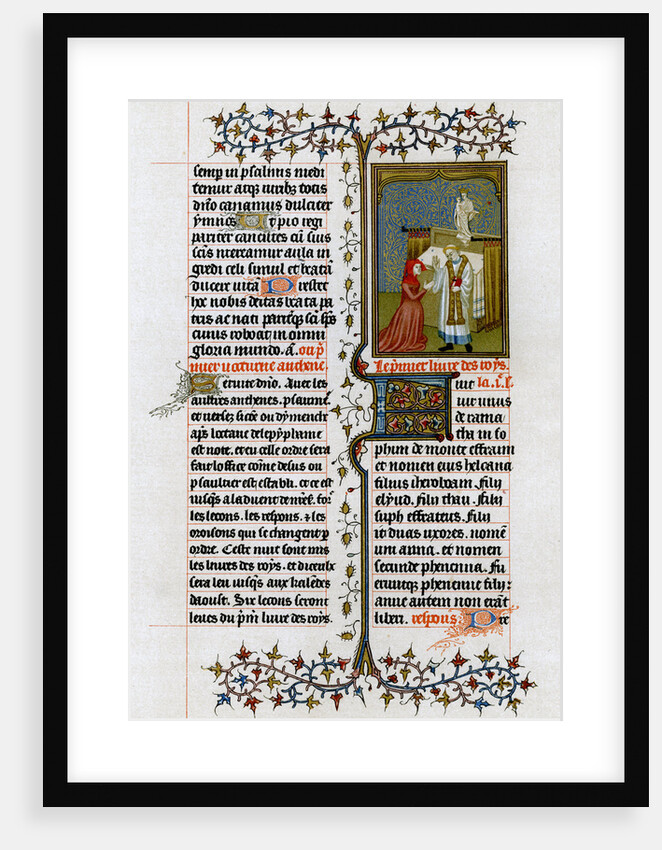 semp in psalmis medi
temur atq; viribꝫ totis
dn̄o canamus dulciter
ymnos. Ut pio regi
pariter canentes cū suis
scīs mereamur aula in
gredi celi simul et beatā
ducere vitā. Prestet
hoc nobis deitas beata pa
tris ac nati pariterq; scī sp̄s
cuius reboat in omni
gloria mundo. a. ou p̄
mier nocturne anthene.
Seruite dn̄o. Auec les
aultres anthenes. pseaum̄.
et verses; sicōe ou dymenche
ap̄s loctaue de lepyphane
est note. et en celle ordre sera
fait loffice cōme desus ou
psaultier est establi. et ce est
iusq̄s a laduent de n̄re s̄. fors
les lecons. les respons. ⁊ les
oroisons qui se changent p
ordre. Ceste nuit sont mis
les liures des roys. et diceulx
sera leu iusq̄s aux kalēdes
daoust. Six lecons seront
leues du p̄m̄ liure des roys.
Le premier liure des roys.
Fuit la .i. l.
uir unus
de rama
tha in so
phim de monte effraim
et nomen eius helcana
filius iheroboam. filij
elyud. filij thau. filij
suph effrateus. Filij
it duas uxores. nomē
um anna. et nomen
secunde phenenna. Fu
eruntq; phenenne filij:
anne autem non erāt
liberi. respons. Pre